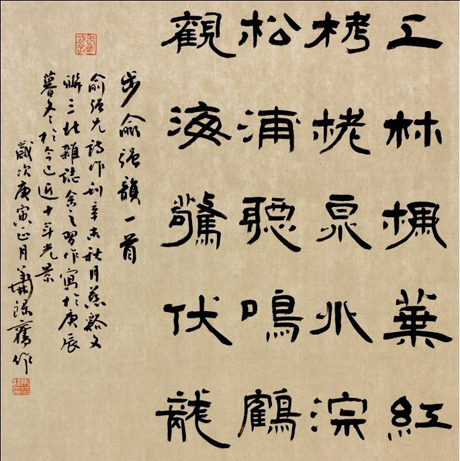 上林楓葉紅
栲栳泉水淙
松浦聽鳴鶴
觀海驚伏龍
步俞強韻一首
俞強先詩作刊辛未秋月慈谿文
聯三北雜誌余之習作寫於庚辰
暮冬於今已近十年光景
歲次庚寅正月舊作